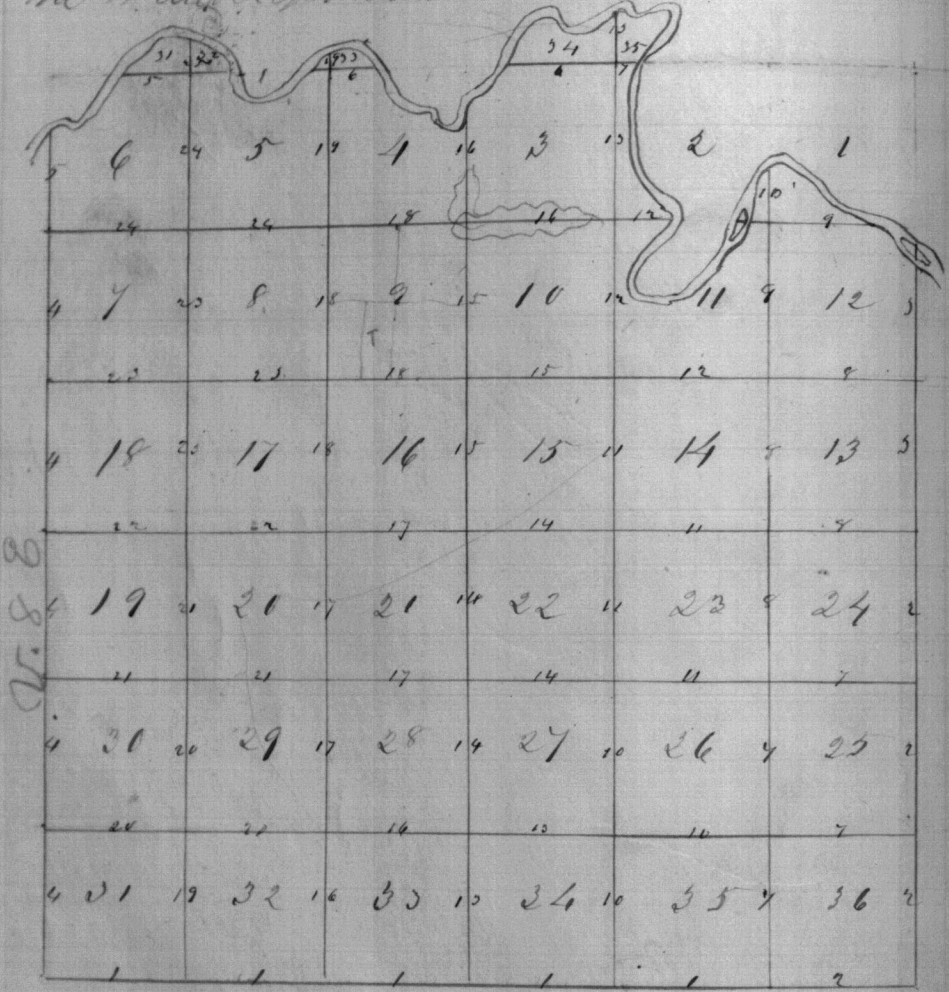 31 32 33 34 35 13
5 1 6 4 7
5 6 24 5 19 4 16 3 13 2 1
10
24 24 18 16 12 9
4 7 23 8 18 9 15 10 12 11 9 12 3
T
23 23 18 15 12 8
4 18 23 17 18 16 15 15 11 14 8 13 3
22 22 17 14 11 8
V. 8 E
4 19 21 20 17 21 14 22 11 23 8 24 2
21 21 17 14 11 7
4 30 20 29 17 28 14 27 10 26 7 25 2
20 21 16 13 10 7
4 31 19 32 16 33 13 34 10 35 7 36 2
1 1 1 1 1 2